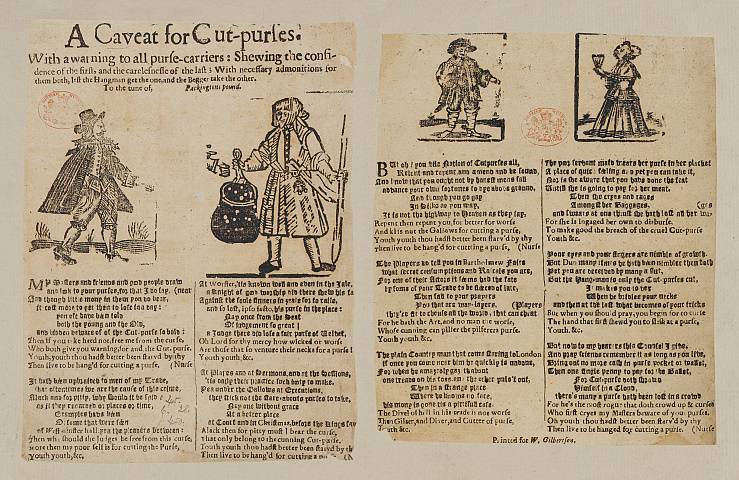 A Caveat for Cut-purses.
With a warning to all purse-carriers: Shewing the confi-
dence of the firsts and the carelesnesse of the last; With necessary admonitions for
them both, lest the Hangman get the one, and the Begger take the other.
To the tune of, Packingtons pound.
MY Masters and friends and good people draw
and look to your purses, for that I do say. (near
And though little mony in them you do bear,
it cost more to get then to lose in a day:
you oft have bin told
both the young and the Old,
and bidden beware of the Cut-purse so bold:
Then if you take heed not, free me from the curse,
Who both give you warning for and the Cut-purse.
Youth, youth thou hadst better been starv'd by thy
Then live to be hang'd for cutting a purse. (Nurse
It hath been upbraided to men of my Trade,
that oftentimes are the cause of this crime,
Alack and for pitty, why should it be said
as if they regarded or places or time,
Examples have been
Of some that were seen
of Westminster hall, yea the pleaders between:
Then why should the Judges be free from this curse,
more then my poor self is for cutting the Purse.
Youth youth, &c.
At Worster, 'tis known well and even in the Jale,
a Knight of good worship did there shew his fa
Against the foule sinners in zeale for to raile,
and so lost, ipso facto, his purse in the place:
Nay once from the Seat
Of judgement so great
a Judge there did lose a fair purse of Velvet,
Oh Lord for thy mercy how wicked or worse
Are those that so venture their necks for a purse
Youth youth, &c.
At Playes and at Sermons, and at the Sessions,
'tis daily their practice such booty to make,
Yea under the Gallows at Executions,
they stick not the stare-abouts purses to take,
Nay one without grace
At a better place
at Court and in Christmas, before the Kings fa
Alack then for pitty must I bear the curse,
that only belong to the cunning Cut-purse.
Youth youth thou hadst better been starv'd by th
Then live to be hang'd for cutting a
BUt oh! you vile Nation of Cutpurses all,
Relent and repent, and amend and be sound,
And know that you ought not by honest mens fall
advance your own fortunes to dye above ground,
And though you go gay
In Silks as you may,
It is not the highway to Heaven as they say,
Repent then repent you, for better for worse
And kiss not the Gallows for cutting a purse.
Youth youth thou hadst better been starv'd by thy
Then live to be hang'd for cutting a purse. (Nurse
The Players do tell you in Bartholmew Faire
what secret consumptions and Rascals you are,
For one of their Actors it seems had the fate
by some of your Trade to be fleeced of late,
Then fall to your prayers
You that are way-layers,
they're fit to chouse all the world, that can cheat (Players
For he hath the Art, and no man the worse,
Whose cunning can pilfer the pilferers purse.
Youth youth, &c.
The plain Country man that comes staring to London
if once you come near him he quickly is undone,
For when he amazedly gaz about
one treads on his toes and the other puls't out,
Then in a strange place
Where he knows no face,
his mony is gone tis a pittifull case,
The Divel of hell in his trade is not worse
Then Gilter, and Diver, and Cutter of purse.
Youth &c.
The poor servant maid wears her purse in her placket
A place of quick feeling and yet you can take it,
Nor is she aware that you have done the feat
Untill she is going to pay for her meat.
Then she cryes and rages
Among her Baggages
and swears at one thrust she hath lost all her wa-
For she is ingaged her own to disburse. (ges
To make good the breach of the cruel Cut-purse
Youth &c.
Your eyes and your fingers are nimble of growth,
But Dun many times he hath bin nimbler then both
Yet you are deceived by many a slut,
But the Hang-man is only the Cut-purses cut,
It makes you to vex
When he bridles your necks
and then at the last what becomes of your tricks
But when you should pray, you begin for to curse
The hand that first shew'd you to slash at a purse,
Youth, &c.
But now to my hearers this Counsel I give,
And pray friends remember it as long as you live,
Bring out no more cash in purse pocket or wallet,
Then one single penny to pay for the Ballet,
For Cut-purse doth shrowd
Himself in a Cloud,
there's many a purse hath been lost in a crowd
For he's the most rogue that doth crowd up & curses
Who first cryes my Masters beware of your purses.
Oh youth thou hadst better been starv'd by thy
Then live to be hanged for cutting a purse. (Nurse
Printed for W. Gilbertson.